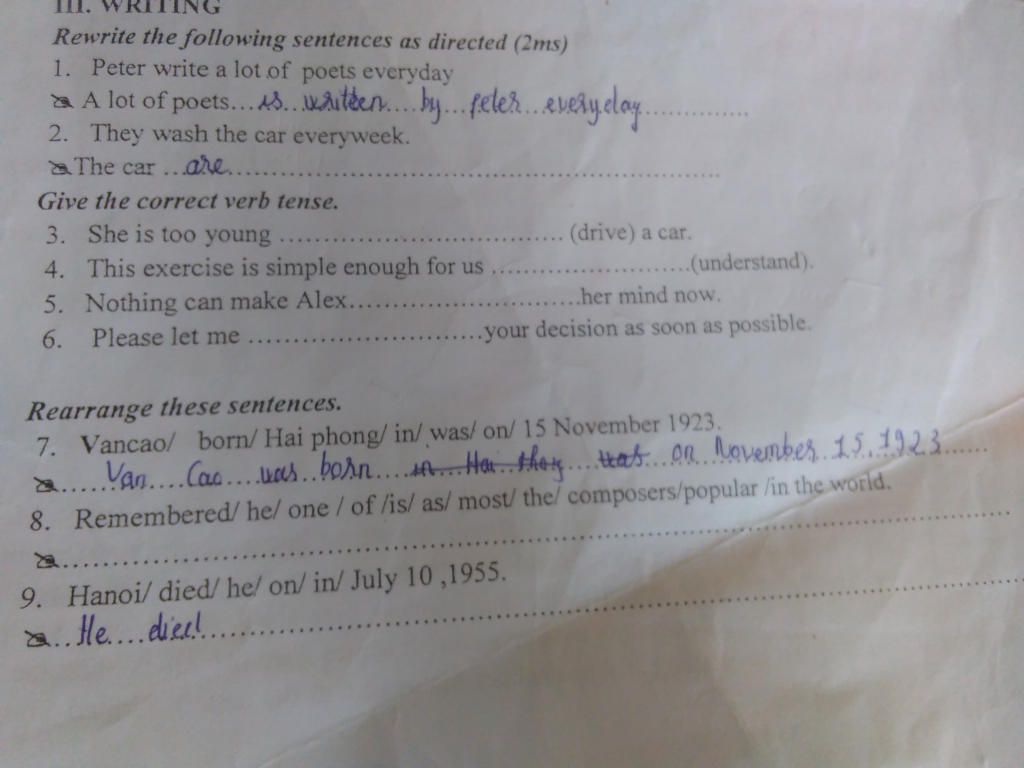 III. WRITING
Rewrite the following sentences as directed (2ms)
1. Peter write a lot of poets everyday
A lot of poets...is..written....by...peter...everyday................
2. They wash the car everyweek.
The car ...are..........................................................................
Give the correct verb tense.
3. She is too young .................................. (drive) a car.
4. This exercise is simple enough for us ........................(understand).
5. Nothing can make Alex............................her mind now.
6. Please let me ............................your decision as soon as possible.
Rearrange these sentences.
7. Vancao/ born/ Hai phong/ in/ was/ on/ 15 November 1923.
......Van....Cao....was..born....in...Hai..phog....was...on..November..15..1923......
8. Remembered/ he/ one / of /is/ as/ most/ the/ composers/popular /in the world.
........................................................................................................
9. Hanoi/ died/ he/ on/ in/ July 10 ,1955.
...He....died........................................................................................